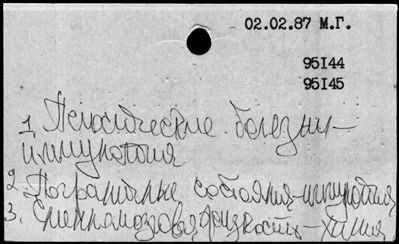 02.02.87 М.Г.
95I44
95I45
1. Психические болезни-
иммунология
2. Пограничные состояния-иммунология
3. Спинномозговая жидкость - химия